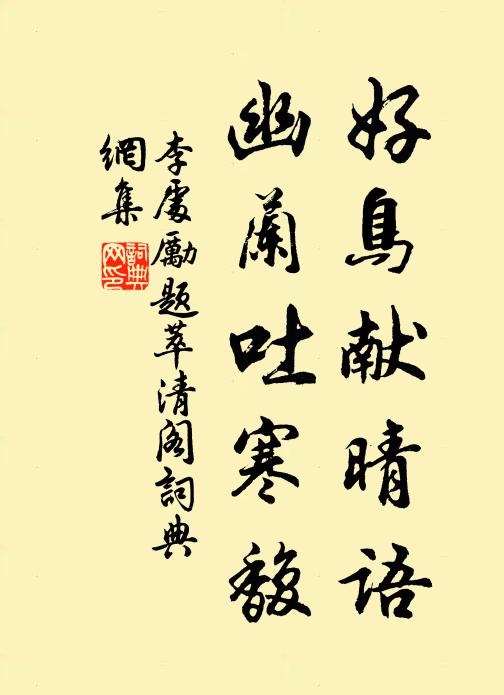 好鳥献晴語
幽蘭吐寒馥
李處勵題萃清閣詞典
網集
詞典網印